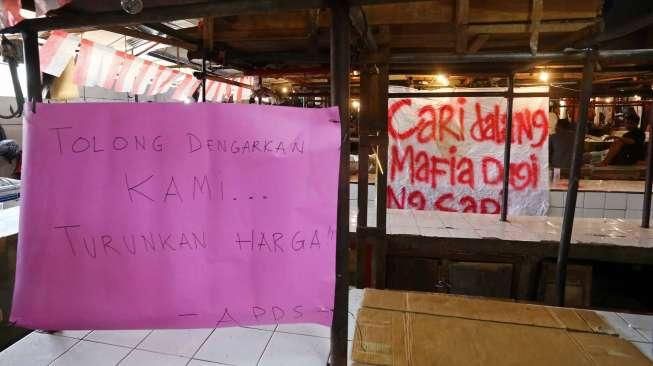 TOLONG DENGARKAN
KAMI...
TURUNKAN HARGA!!
- APDS -
Cari dalang
Mafia Dagi
Ng Sapi